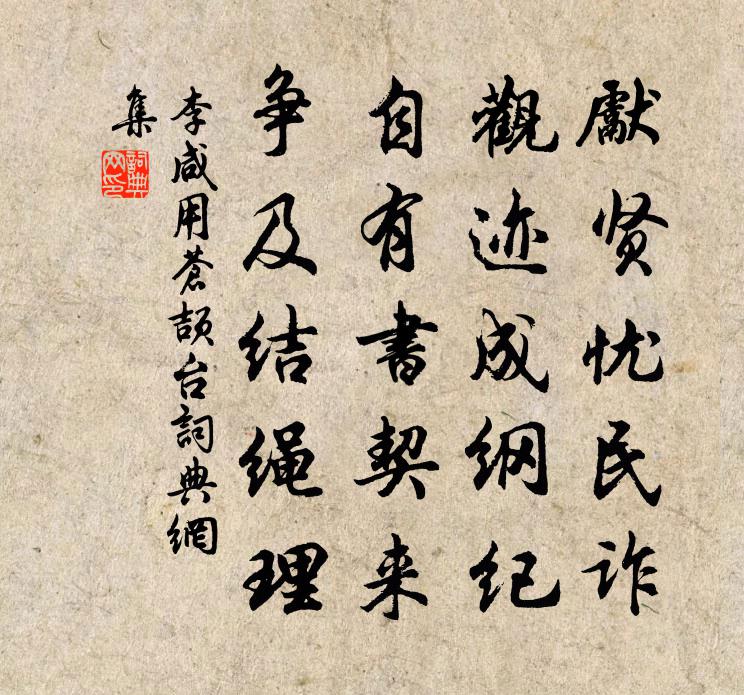 獻贤忧民诈
觀迹成纲纪
自有書契来
争及结绳理
李咸用蒼颉台詞典網
集
詞典
网印